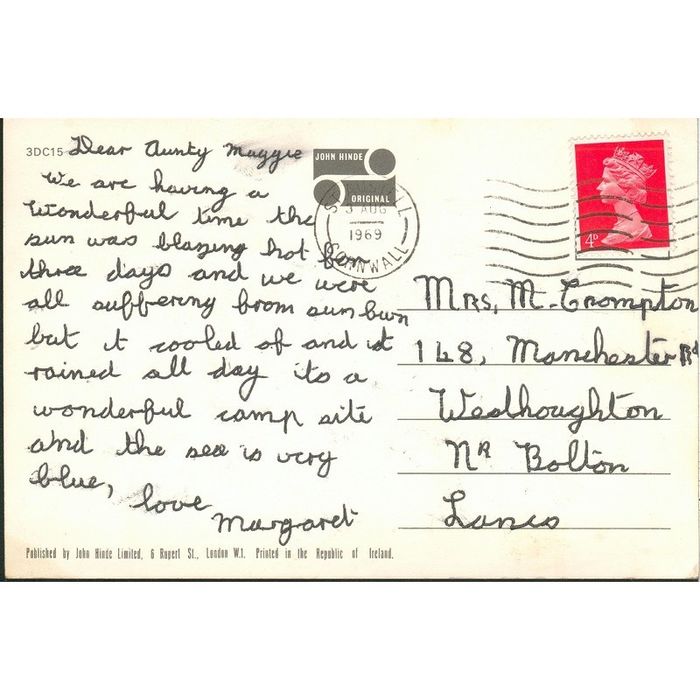 3DC15
Dear Aunty Maggie
We are having a
wonderful time the
sun was blazing hot for
three days and we were
all suffering from sunburn
but it cooled of and it
rained all day its a
wonderful camp site
and the sea is very
blue,
love
Margaret
JOHN HINDE
ORIGINAL
3 AUG
1969
CORNWALL
4D
Mrs, M. Crompton
148, Manchester Rd
Westhoughton
Nr Bolton
Lancs
Published by John Hinde Limited, 6 Rupert St., London W.1. Printed in the Republic of Ireland.